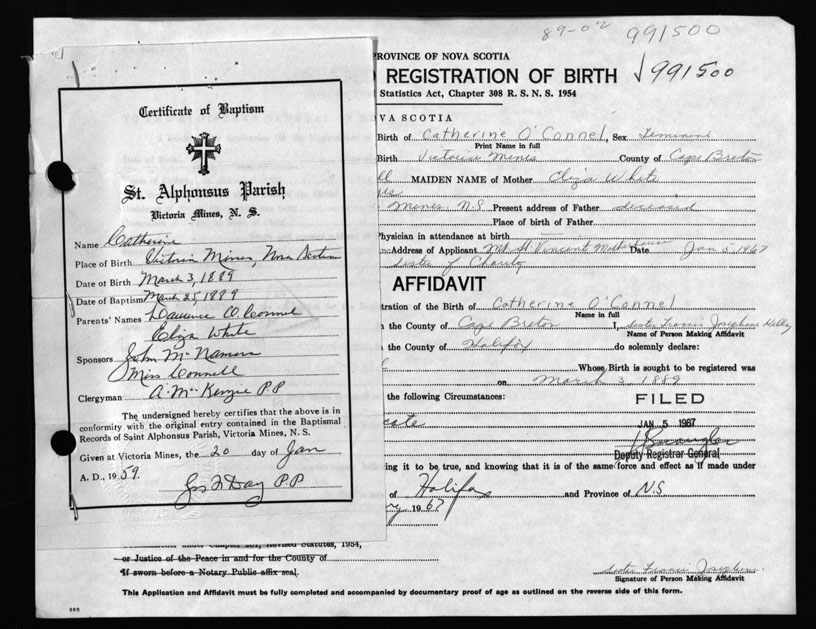 89-02 991500
PROVINCE OF NOVA SCOTIA
REGISTRATION OF BIRTH √991500
Statistics Act, Chapter 308 R. S. N. S. 1954
Certificate of Baptism
St. Alphonsus Parish
Victoria Mines, N. S.
Name Catherine
Place of Birth Victoria Mines, Nova Scotia
Date of Birth March 3, 1889
Date of Baptism March 25, 1889
Parents' Names Lawrence O'Connel
Eliza White
Sponsors John McNamara
Miss Connell
Clergyman A. McKenzie P.P
The undersigned hereby certifies that the above is in
conformity with the original entry contained in the Baptismal
Records of Saint Alphonsus Parish, Victoria Mines, N. S.
Given at Victoria Mines, the 20 day of Jan
A. D., 1959.
Jos N Day P.P
VA SCOTIA
Birth of Catherine O'Connel, Sex Feminine
Print Name in full
Birth Victoria Mines County of Cape Breton
MAIDEN NAME of Mother Eliza White
Mines, N.S. Present address of Father deceased
Place of birth of Father
Physician in attendance at birth —
Address of Applicant Mt. St. Vincent Motherhouse Date Jan 5, 1967
Sister of Charity
AFFIDAVIT
tration of the Birth of Catherine O'Connel
Name in full
the County of Cape Breton I, Sister Francis Josephine Kelley
Name of Person Making Affidavit
the County of Halifax do solemnly declare:
Whose Birth is sought to be registered was
on March 3, 1889
the following Circumstances: FILED
cate JAN 5 1967
Deputy Registrar General
ing it to be true, and knowing that it is of the same force and effect as if made under
of Halifax and Province of N.S.
ry 1967
under Chapter 201, Revised Statutes, 1954,
or Justice of the Peace in and for the County of
If sworn before a Notary Public affix seal.
Sister Francis Josephine
Signature of Person Making Affidavit
This Application and Affidavit must be fully completed and accompanied by documentary proof of age as outlined on the reverse side of this form.